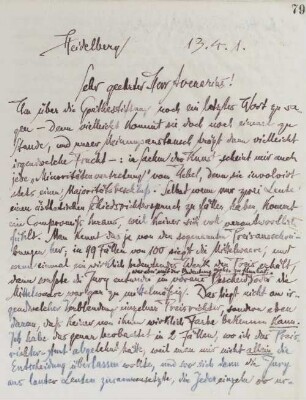 79
Heidelberg 13. V. 1.
Sehr geehrter Herr Avenarius!
Um über die Goethestiftung noch ein letztes Wort zu sa-
gen – denn vielleicht kommt sie doch noch einmal zu
Stande, und unser Meinungsaustausch trägt dann vielleicht
irgendwelche Frucht –: in solchen scheint mir auch
jede „Minoritätenvertretung" von Übel, denn sie involvirt
stets einen Majoritäts. Selbst wenn nur zwei Leute
einen ästhetischen Richterspruch zu fällen haben kommt
ein Compromiß heraus, weil keiner sich voll verantwortlich
fühlt. Man kennt das ja von den sogenannten Preisausschrei-
bungen her; in 99 Fällen von 100 siegt die Mittelware, und
wenn einmal ein wirklich bedeutendes Werk den Preis erhält,
dann wußte die Jury entweder
Mittelware war gar zu mittelmäßig. Das liegt nicht an ir-
gendwelcher Verblendung einzelner Preisrichter, sondern eben
daran, daß keiner von ihnen wirklich Farbe bekennen kann.
Ich habe das genau beobachtet in 2 Fällen, wo ich das Preis-
richter-Amt abgelehnt hatte, weil man mir nicht allein die
Entscheidung überlassen wollte, und wo sich dann die Jury
aus lauter Leuten zusammensetzte, die jeder einzeln